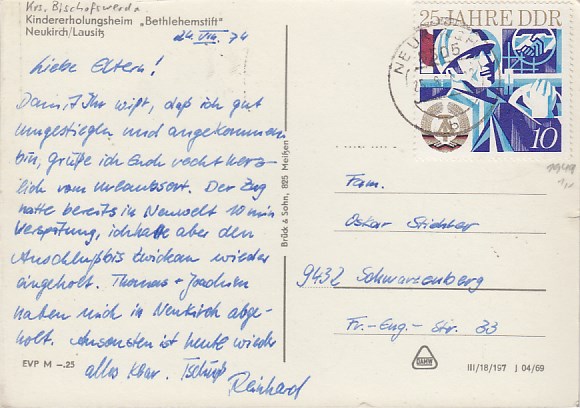 Krs. Bischofswerda
Kindererholungsheim „Bethlehemstift"
Neukirch/Lausitz
24. VIII. 74
Liebe Eltern!
Damit Ihr wißt, daß ich gut
umgestiegen und angekommen
bin, grüße ich Euch recht herz-
lich vom Urlaubsort. Der Zug
hatte bereits in Neuwelt 10 min
Verspätung, ich hatte aber den
Anschluß bis Zwickau wieder
eingeholt. Thomas + Joachim
haben mich in Neukirch abge-
holt. Ansonsten ist heute wieder
alles klar. Tschüß
Reinhard
EVP M –.25
Brück & Sohn, 825 Meißen
25 JAHRE DDR
10
NEUKIRCH
Fam.
Oskar Stichler
9432 Schwarzenberg
Fr.-Eng.- Str. 33
III/18/197 J 04/69